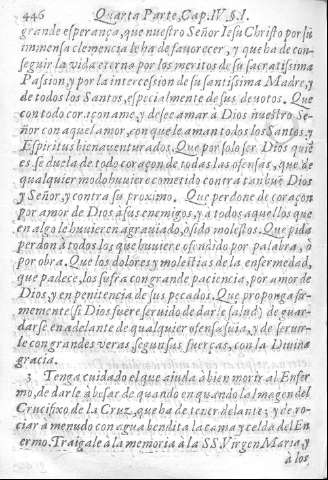 446 Quarta Parte, Cap. IV. §. I.
grande esperança, que nuestro Señor Iesu Christo por sú
immensa clemencia le ha de fauorecer, y que ha de con-
seguir la vida eterna por los meritos de su sacratissima
Passion, y por la intercession de su santissima Madre, y
de todos los Santos, especialmente de sus deuotos. Que
con todo corrçon ame, y desee amar à Dios nuestro Se-
ñor con aquel amor, con que le aman todos los Santos, y
Espiritus bienauenturados. Que por solo ser Dios quiē
es se duela de todo coraçon de todas las ofensas, que de
qualquier modo huuiere cometido contra tan buē Dios
y Señor, y contra su proximo. Que perdone de coraçon
por amor de Dios à sus enemigos, y a todos aquellos que
en algo le huuieren agrauiado, ò sido molestos. Que pida
perdon à todos los que huuiere ofendido por palabra, ò
por obra. Que los dolores y molestias de la enfermedad,
que padece, los sufra con grande paciencia, por amor de
Dios, y en penitencia de sus pecados. Que proponga fir-
memente (si Dios fuere seruido de darle salud) de guar-
darse en adelante de qualquier ofensa suia, y de seruir-
le con grandes veras segun sus fuerças, con la Diuina
gracia.
3 Tenga cuidado el que aiuda à bien morir al Enfer
mo, de darle à besar de quando en quando la Imagen del
Crucifixo de la Cruz, que ha de tener delante; y de ro-
ciar à menudo con agua bendita la cama y celda del En
ermo. Traigale a la memoria à la SS. Virgen Maria, y
à los